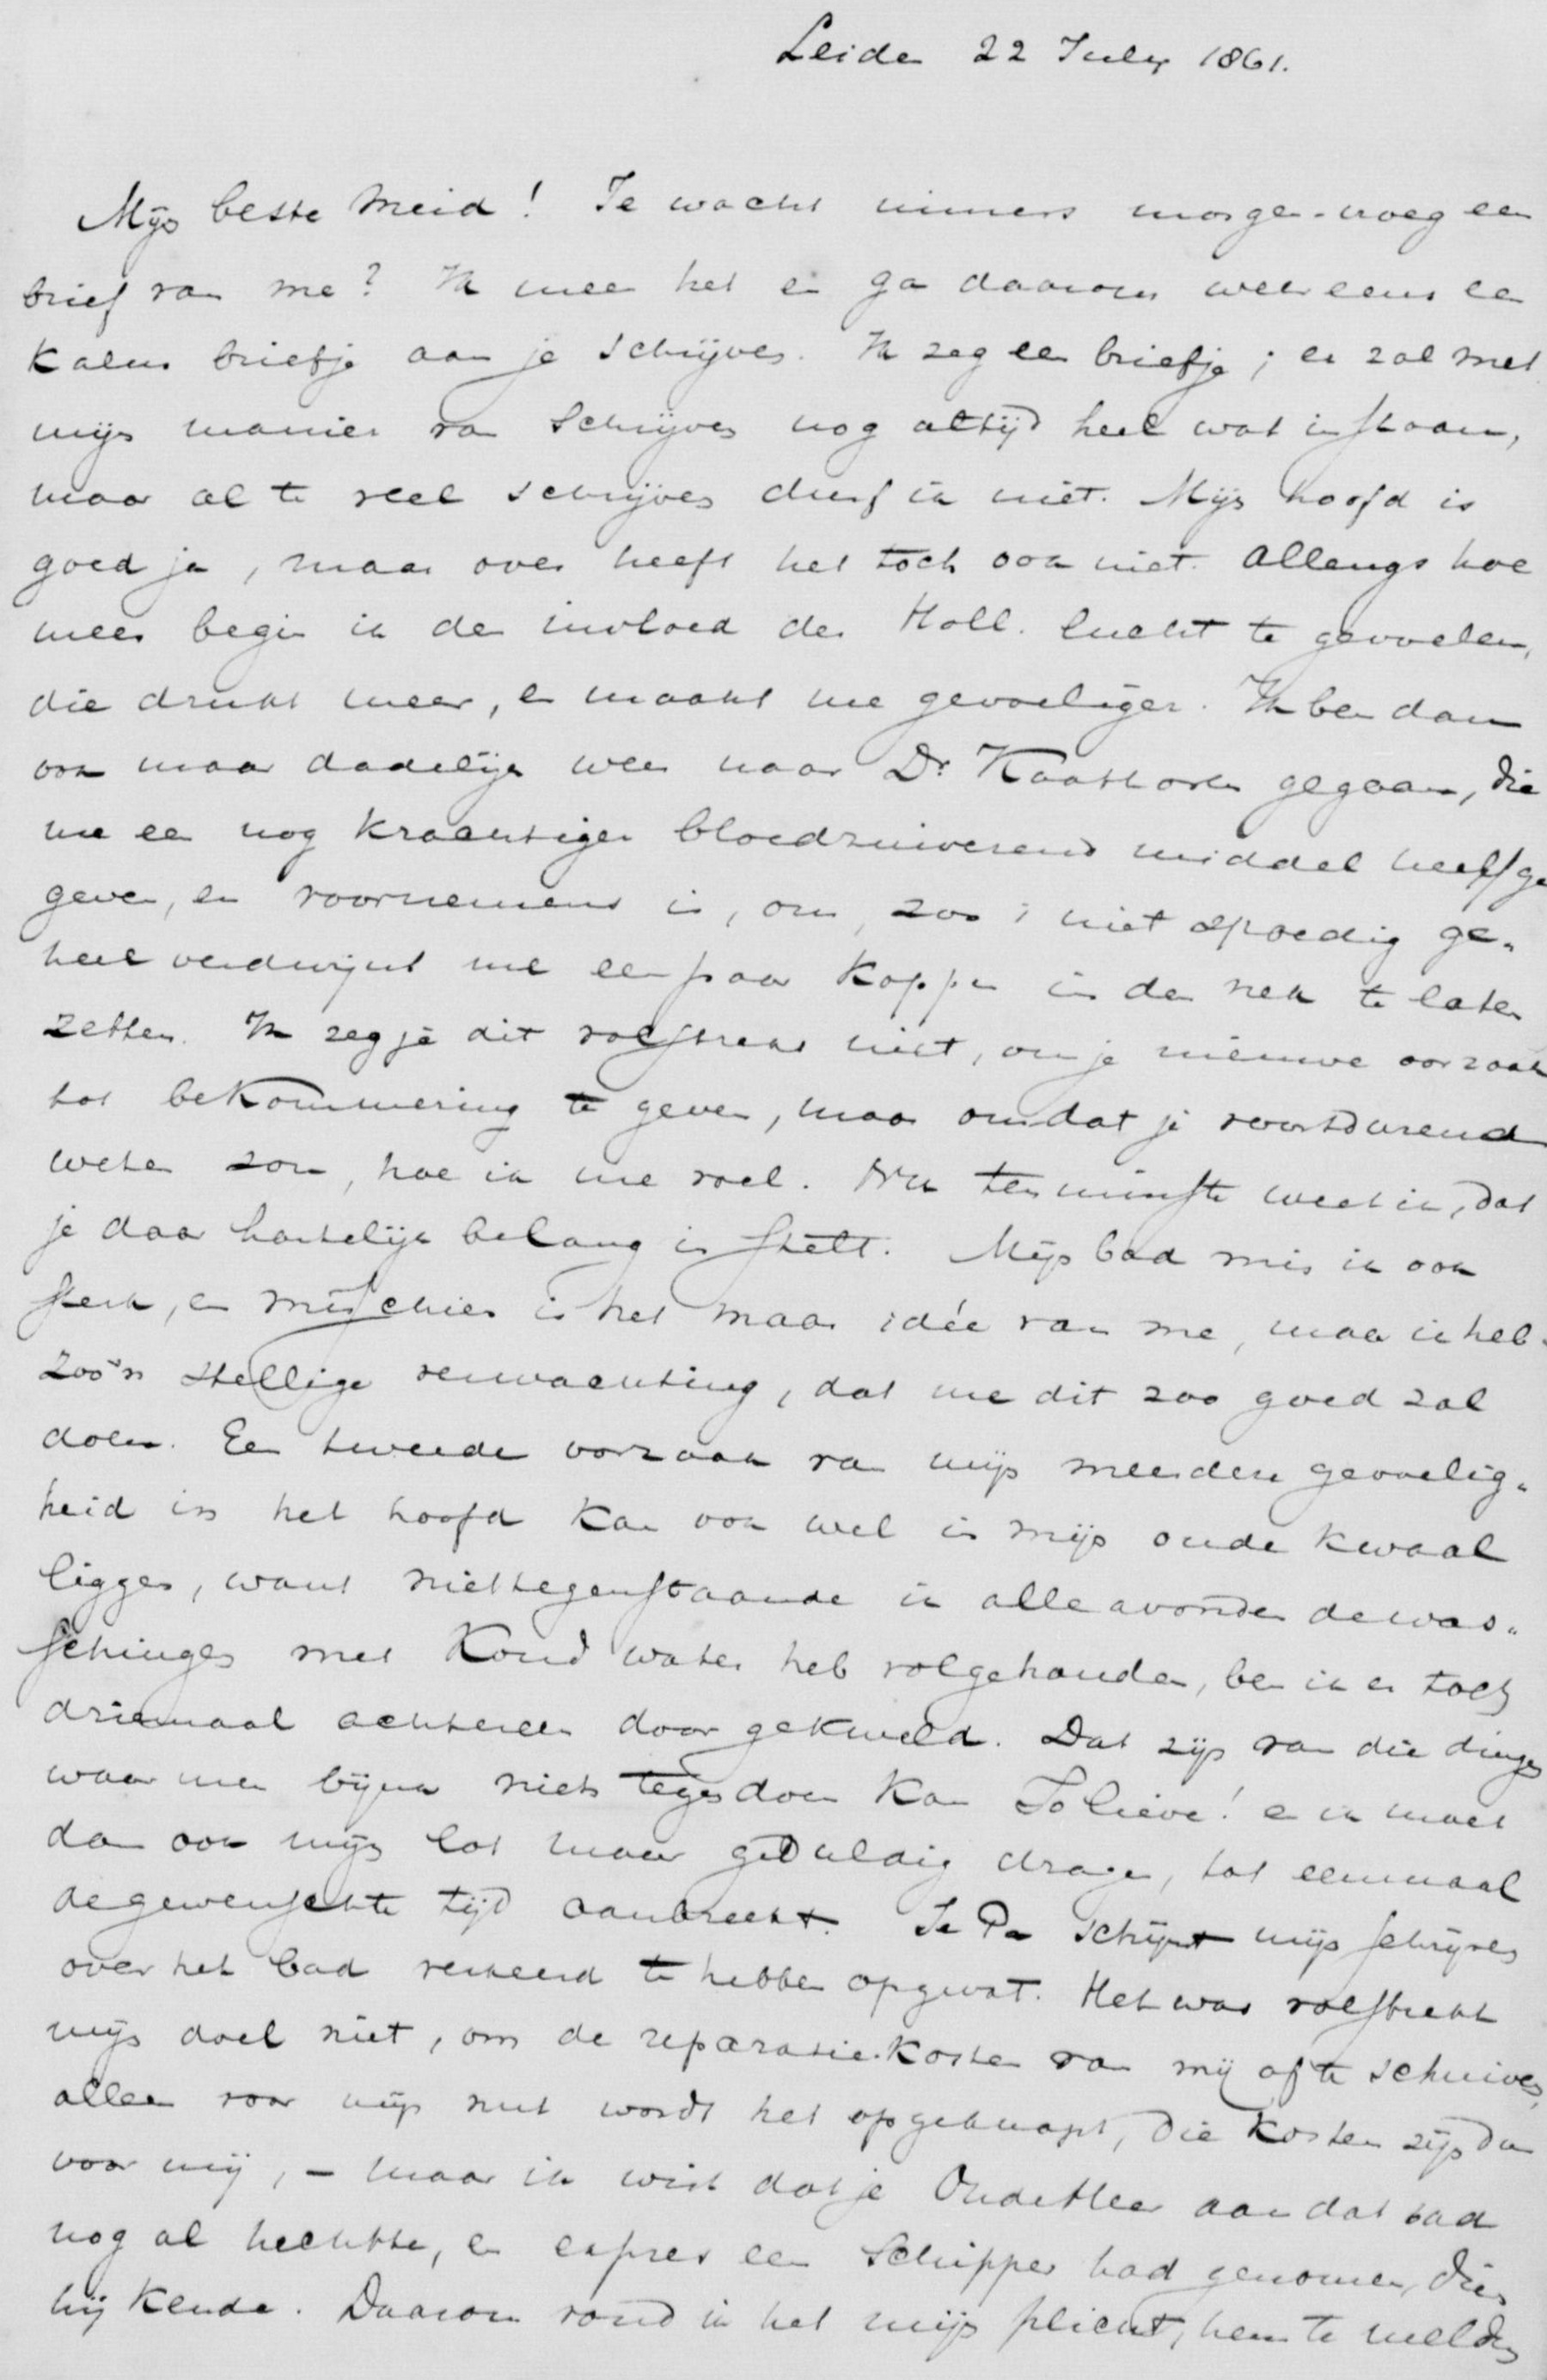 Leiden 22 July 1861.
Mijn beste Meid! Je wacht immers morgen-vroeg een
brief van me? Ik meen het en ga daarom weer eens een
kalm briefje aan je schrijven. Ik zeg een briefje; er zal met
mijn manier van Schrijven nog altijd heel wat in staan,
maar al te veel schrijven durf ik niet. Mijn hoofd is
goed ja, maar over heeft het toch ook niet. Allengs hoe
meer begin ik den invloed der Holl. lucht te gevoelen,
die drukt meer, en maakt me gevoeliger. Ik ben dan
ook maar dadelijk weer naar Dr. gegaan, die
me een nog krachtiger bloedzuiverend middel heeft ge
geven, en voornemens is, om, zoo 't niet spoedig ge-
heel verdwijnt me een paar koppen in den nek te laten
zetten. Ik zeg je dit volstrekt niet, om je nieuwe oorzaak
tot bekommering te geven, maar omdat je voortdurend
weten zou, hoe ik me voel. Nu ten minste weet ik, dat
je daar hartelijk belang in stelt. Mijn bad mis ik ook
sterk, en misschien is het maar idée van me, maar ik heb
zoo'n stellige verwachting, dat me dit zoo goed zal
doen. Een tweede oorzaak van mijn meerdere gevoelig-
heid in het hoofd kan ook wel in mijn oude kwaal
liggen, want niettegenstaande ik alle avonden de was-
schingen met Koud water heb volgehouden, ben ik er toch
driemaal achtereen door gekweld. Dat zijn van die dingen
waar men bijna niets tegen doen kan Jo lieve! en ik moet
dan ook mijn lot maar geduldig dragen, tot eenmaal
de gewenschte tijd aanbreekt. Je Pa schijnt mijn schrijven
over het bad verkeerd te hebben opgevat. Het was volstrekt
mijn doel niet, om de reparatie-kosten van mij af te schuiven,
alleen voor mijn nut wordt het opgeknapt, die kosten zijn dan
voor mij, – maar ik wist dat je Oude Heer aan dat bad
nog al hechtte, en expres een Schipper had genomen, dien
hij kende. Daarom vond ik het mijn plicht, hem te melden